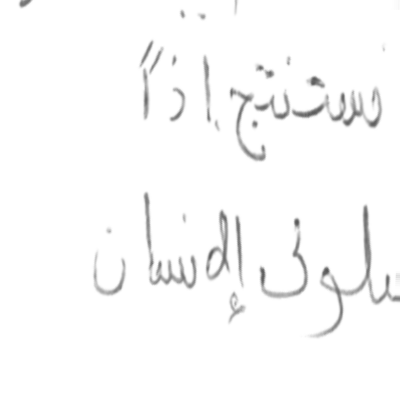 نستنتج إذاً
سلوك الإنسان